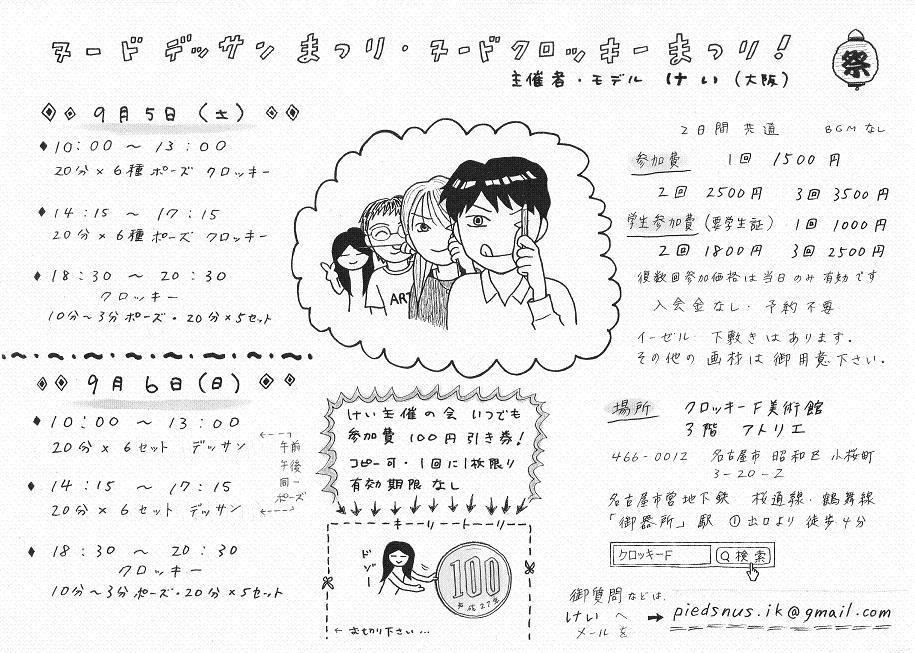 ヌードデッサンまつり・ヌードクロッキーまつり!
祭
主催者・モデル けい (大阪)
9月5日(土)
10:00 〜 13:00
20分×6種ポーズ クロッキー
14:15 〜 17:15
20分×6種ポーズ クロッキー
18:30 〜 20:30
クロッキー
10分〜3分ポーズ・20分×5セット
9月6日(日)
10:00 〜 13:00
20分×6セット デッサン
午前
午後
同一
ポーズ
14:15 〜 17:15
20分×6セット デッサン
18:30 〜 20:30
クロッキー
10分〜3分ポーズ・20分×5セット
ART
けい主催の会 いつでも
参加費 100円引き券!
コピー可・1回に1枚限り
有効期限なし
キーリートーリー
ドゾー
100
平成27年
← お切り下さい…
2日間 共通 BGMなし
参加費 1回 1500円
2回 2500円 3回 3500円
学生参加費(要学生証) 1回 1000円
2回 1800円 3回 2500円
複数回参加価格は当日のみ有効です
入会金なし・予約不要
イーゼル 下敷きはあります。
その他の画材は御用意下さい。
場所 クロッキーF美術館
3階 アトリエ
466-0012 名古屋市 昭和区 小桜町
3-20-2
名古屋市営地下鉄 桜通線・鶴舞線
「御器所」駅 ①出口より 徒歩4分
クロッキーF 検索
御質問などは、
けいへ
メールを
→ piedsnus.ik@gmail.com